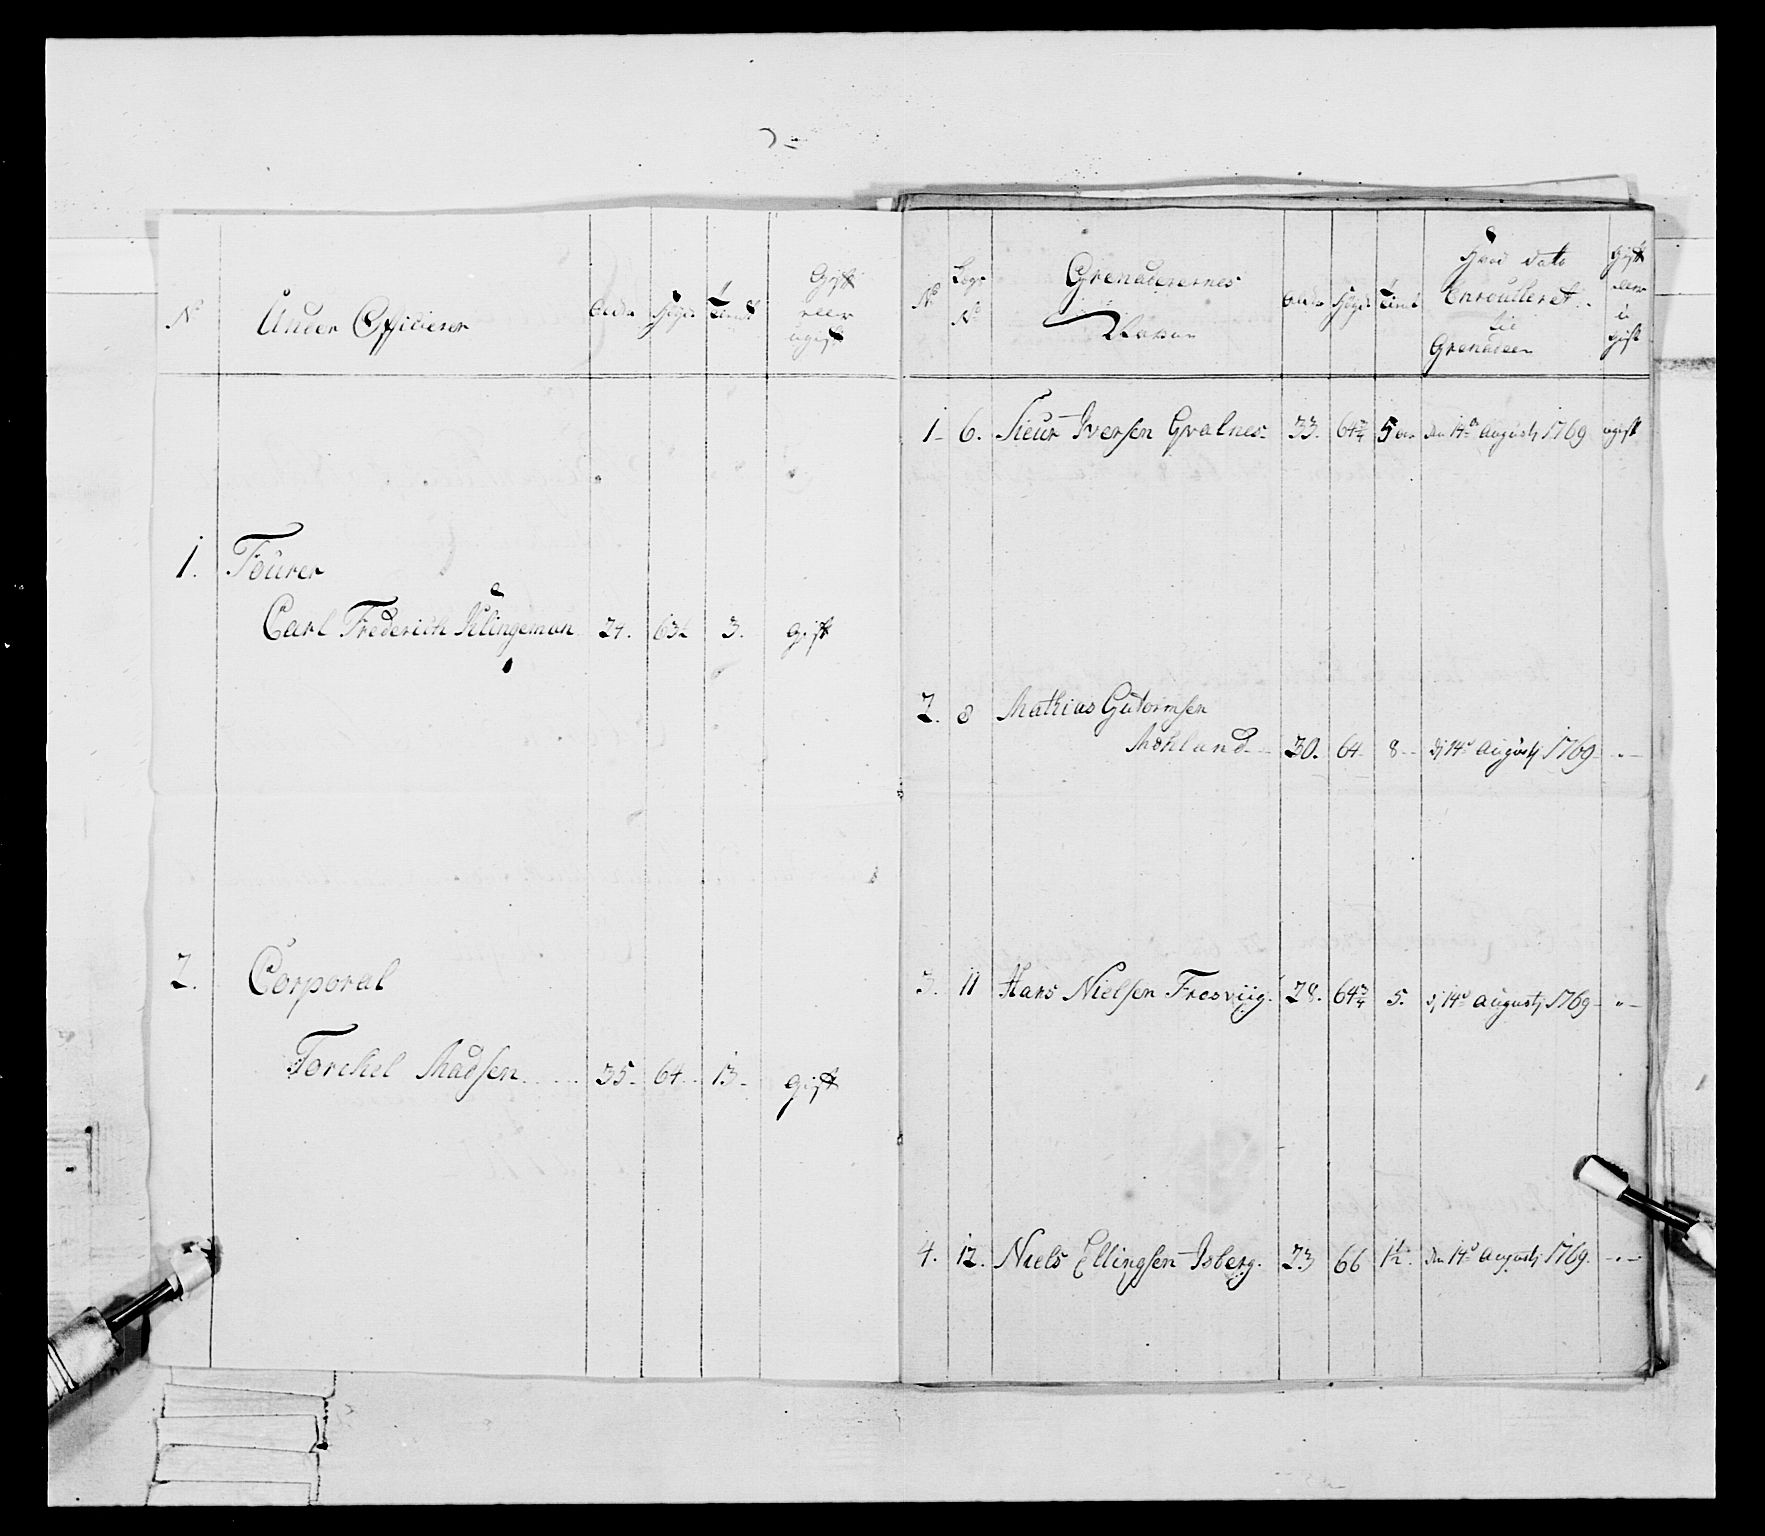 No
Under Officierer
Alder
Høyde
Tient
Gift
eller
ugift
1. Fourer
Carl Frederich Klingeman 24. 63½ 3. gift
2. Corporal
Torchel Madsen 35. 64 13. gift
No
Legs
No
Grenaderernes
Nafne
Alder
Høyde
Tient
Hvad dato
Enroulleret
til
Grenadeer
Gift
eller
u
gift
1. 6. Sieur Iversen Qvalnes 33. 64¾ 5 Den 14de Augustj 1769 ugift
2. 8 Mathias Gutormsen
Mohland 30. 64 8 dj 14de Augustj 1769 - " -
3. 11 Hans Nielsen Fresviig. 28. 64¾ 5. dj 14de Augustj 1769 - " -
4. 12. Niels Ellingsen Isberg. 23 66 1½. Den 14de Augustj 1769. - " -